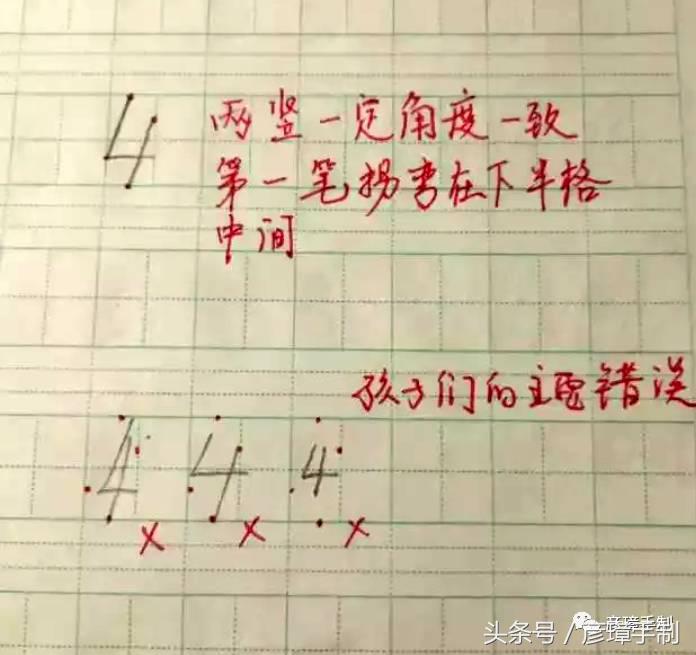 4 两竖一定角度一致
第一笔拐弯在下半格
中间
孩子们的主要错误
4 4 4
× × ×
彦璋手制
头条号/彦璋手制